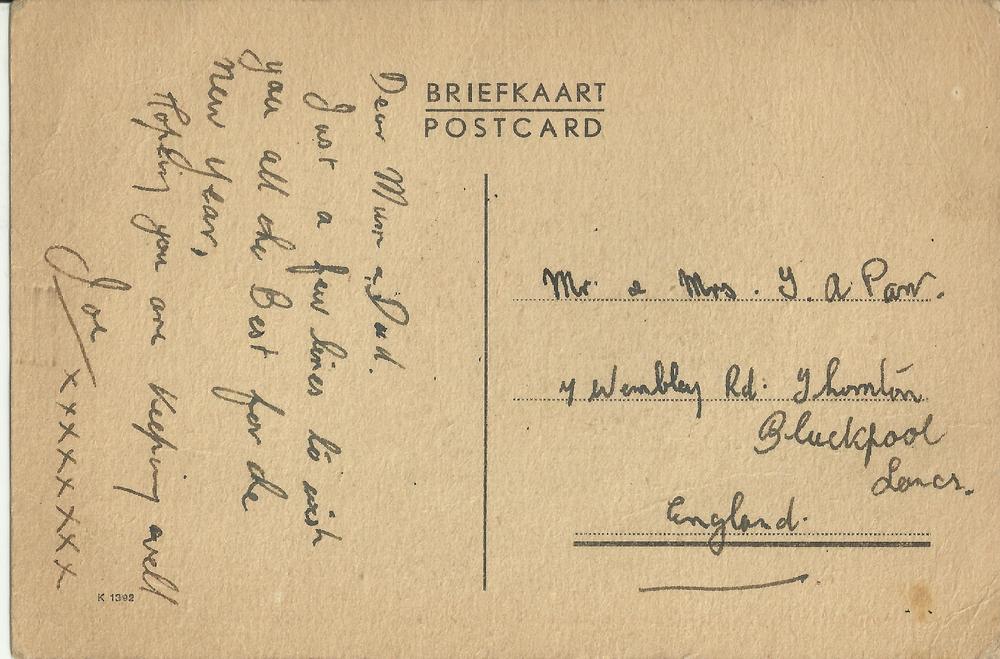 BRIEFKAART
POSTCARD
Dear Mum & Dad.
Just a few lines to wish
you all the Best for the
New Year,
Hoping you are keeping well
Joe
xxxxxxx
Mr. & Mrs. T. A Parr.
Wembley Rd. Thornton
Blackpool
Lancs.
England.
K 1392